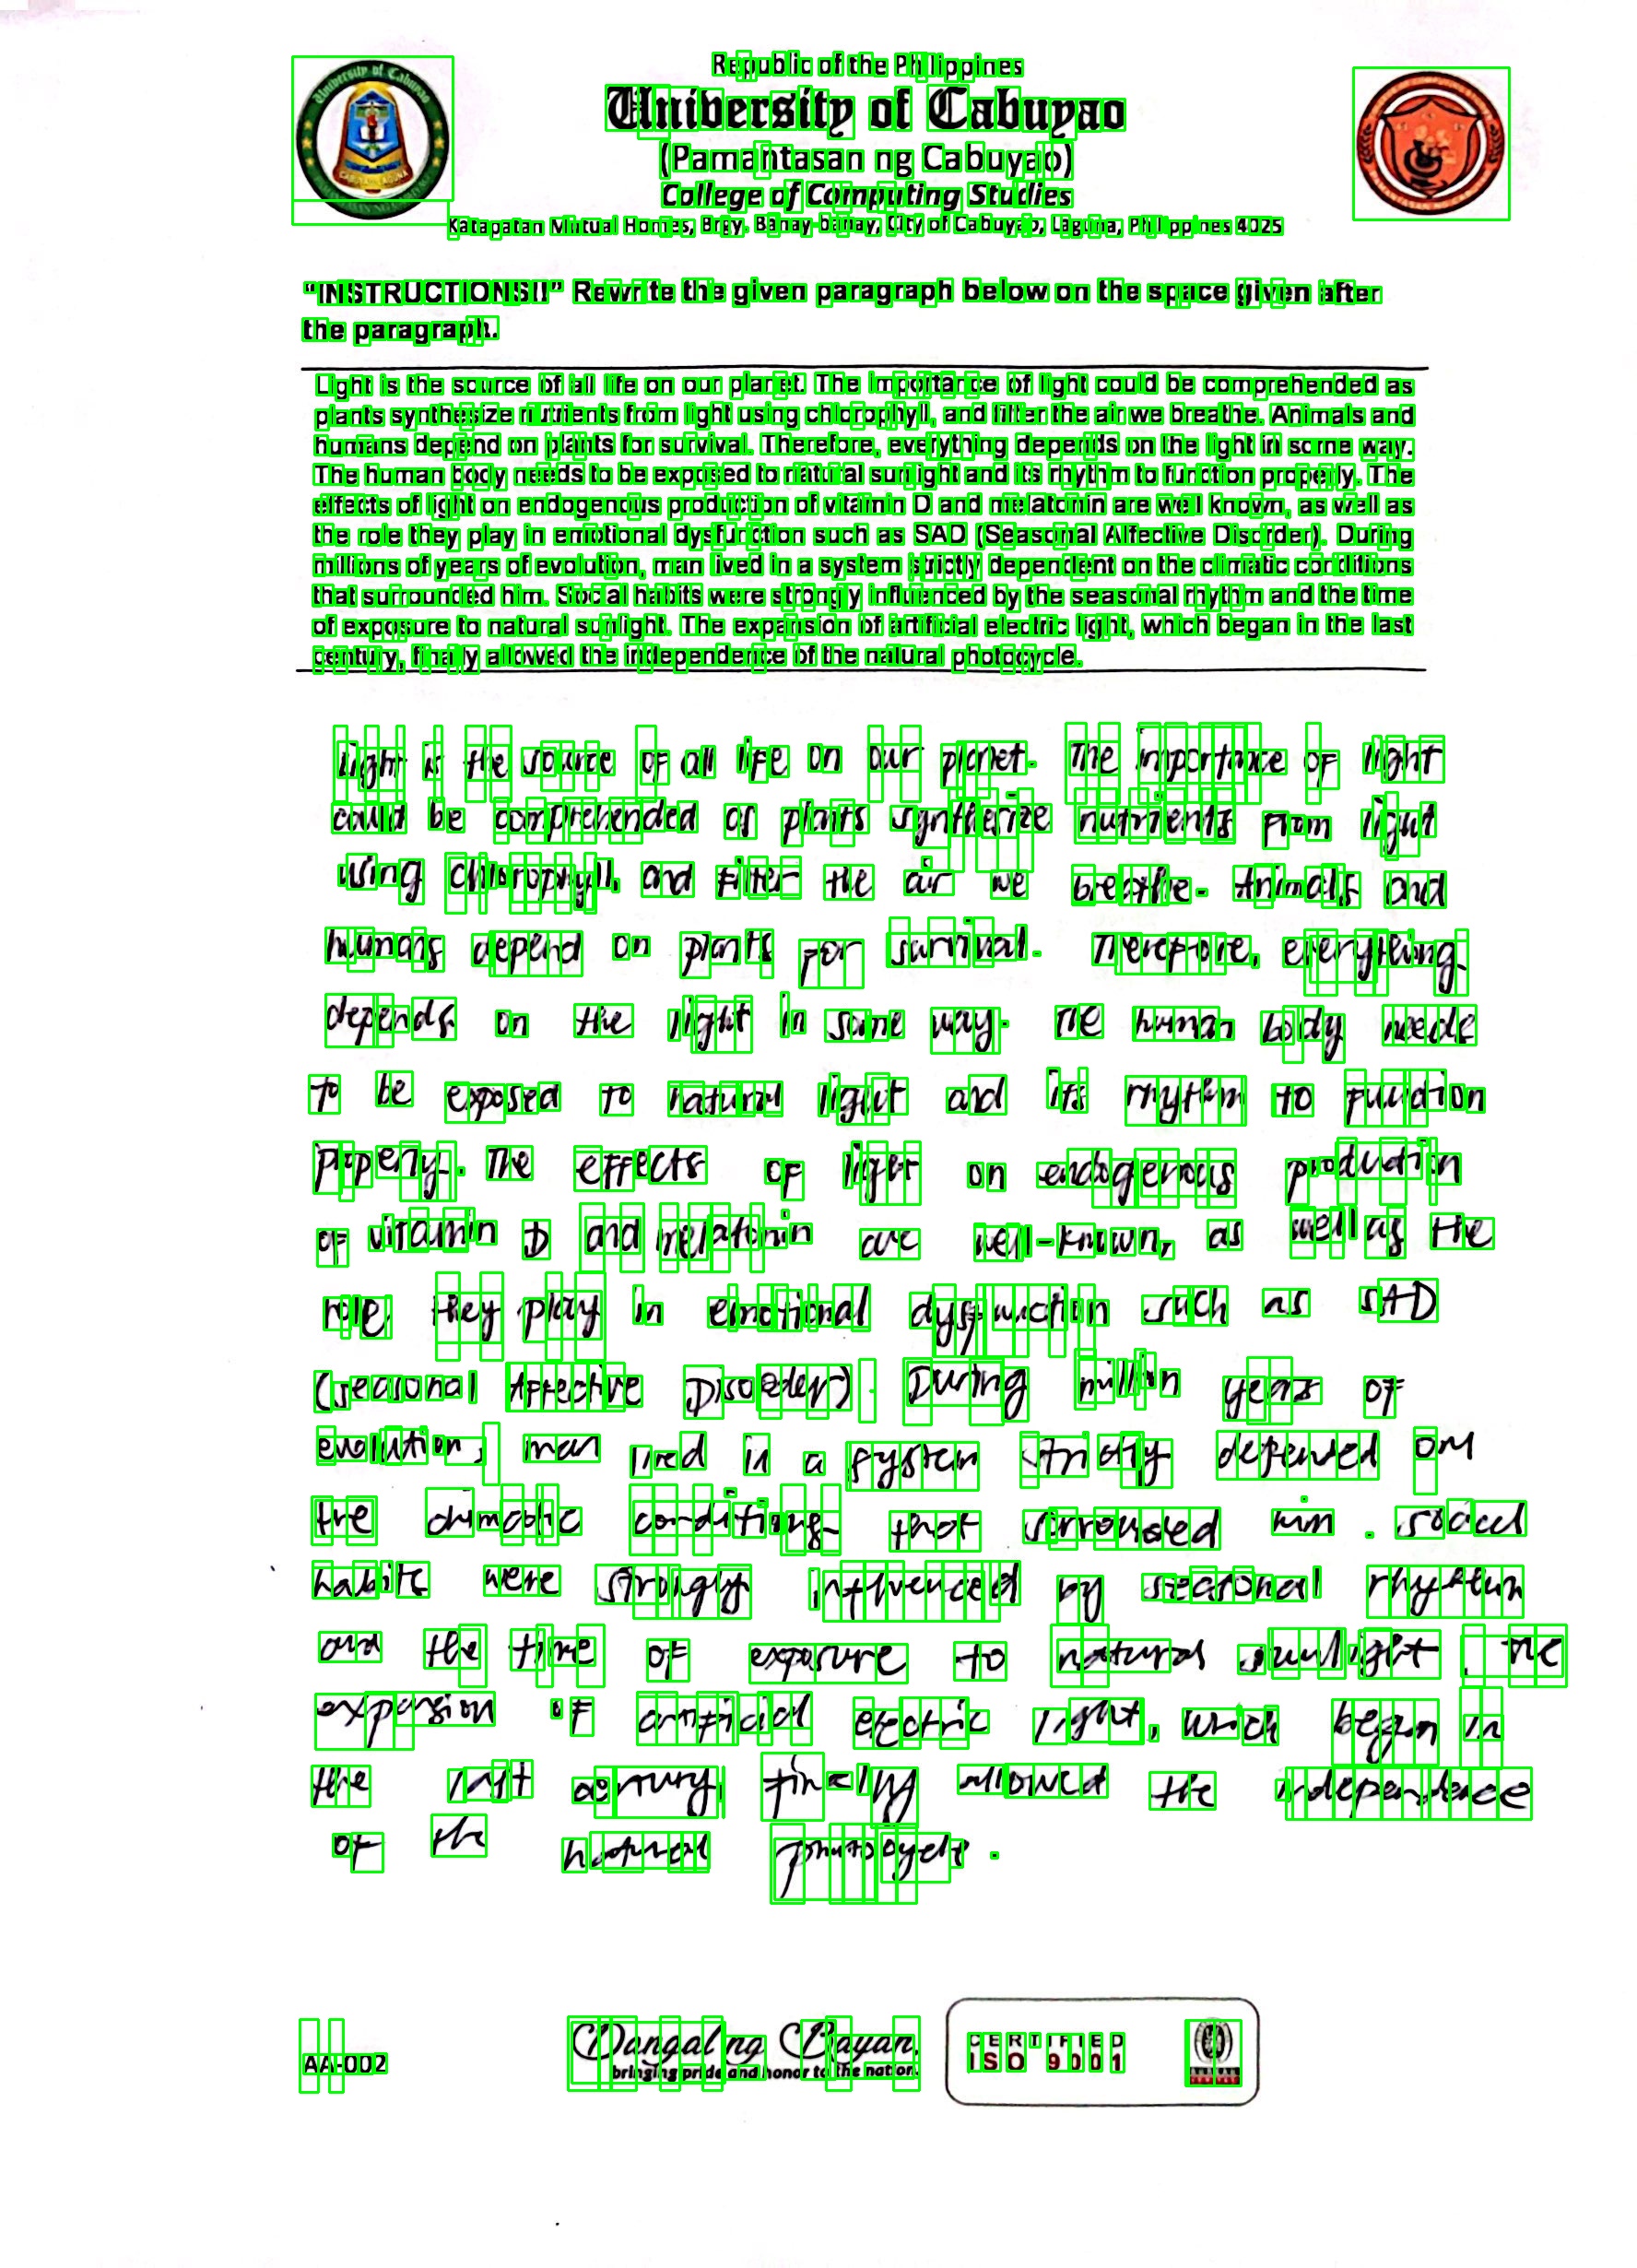 Republic of the Philippines
University of Cabuyao
(Pamantasan ng Cabuyao)
College of Computing Studies
Katapatan Mutual Homes, Brgy. Banay-banay, City of Cabuyao, Laguna, Philippines 4025
"INSTRUCTIONS!!" Rewrite the given paragraph below on the space given after
the paragraph.
Light is the source of all life on our planet. The importance of light could be comprehended as
plants synthesize nutrients from light using chlorophyll, and filter the air we breathe. Animals and
humans depend on plants for survival. Therefore, everything depends on the light in some way.
The human body needs to be exposed to natural sunlight and its rhythm to function properly. The
effects of light on endogenous production of vitamin D and melatonin are well known, as well as
the role they play in emotional dysfunction such as SAD (Seasonal Affective Disorder). During
millions of years of evolution, man lived in a system strictly dependent on the climatic conditions
that surrounded him. Social habits were strongly influenced by the seasonal rhythm and the time
of exposure to natural sunlight. The expansion of artificial electric light, which began in the last
century, finally allowed the independence of the natural photocycle.
Light is the source of all life on our planet. The importance of light
could be comprehended as plants synthesize nutrients from light
using chlorophyll, and filter the air we breathe. Animals and
humans depend on plants for survival. Therefore, everything
depends on the light in some way. The human body needs
to be exposed to natural light and its rhythm to function
properly. The effects of light on endogenous production
of vitamin D and melatonin are well-known, as well as the
role they play in emotional dysfunction such as SAD
(seasonal Affective Disorder). During million years of
evolution, man lived in a system strictly depended on
the climatic conditions that surrounded him. social
habits were strongly influenced by seasonal rhythm
and the time of exposure to natural sunlight. The
expansion of artificial electric light, which began in
the last century, finally allowed the independence
of the natural photocycle.
AA-002
Dangal ng Bayan
bringing pride and honor to the nation.
CERTIFIED
ISO 9001